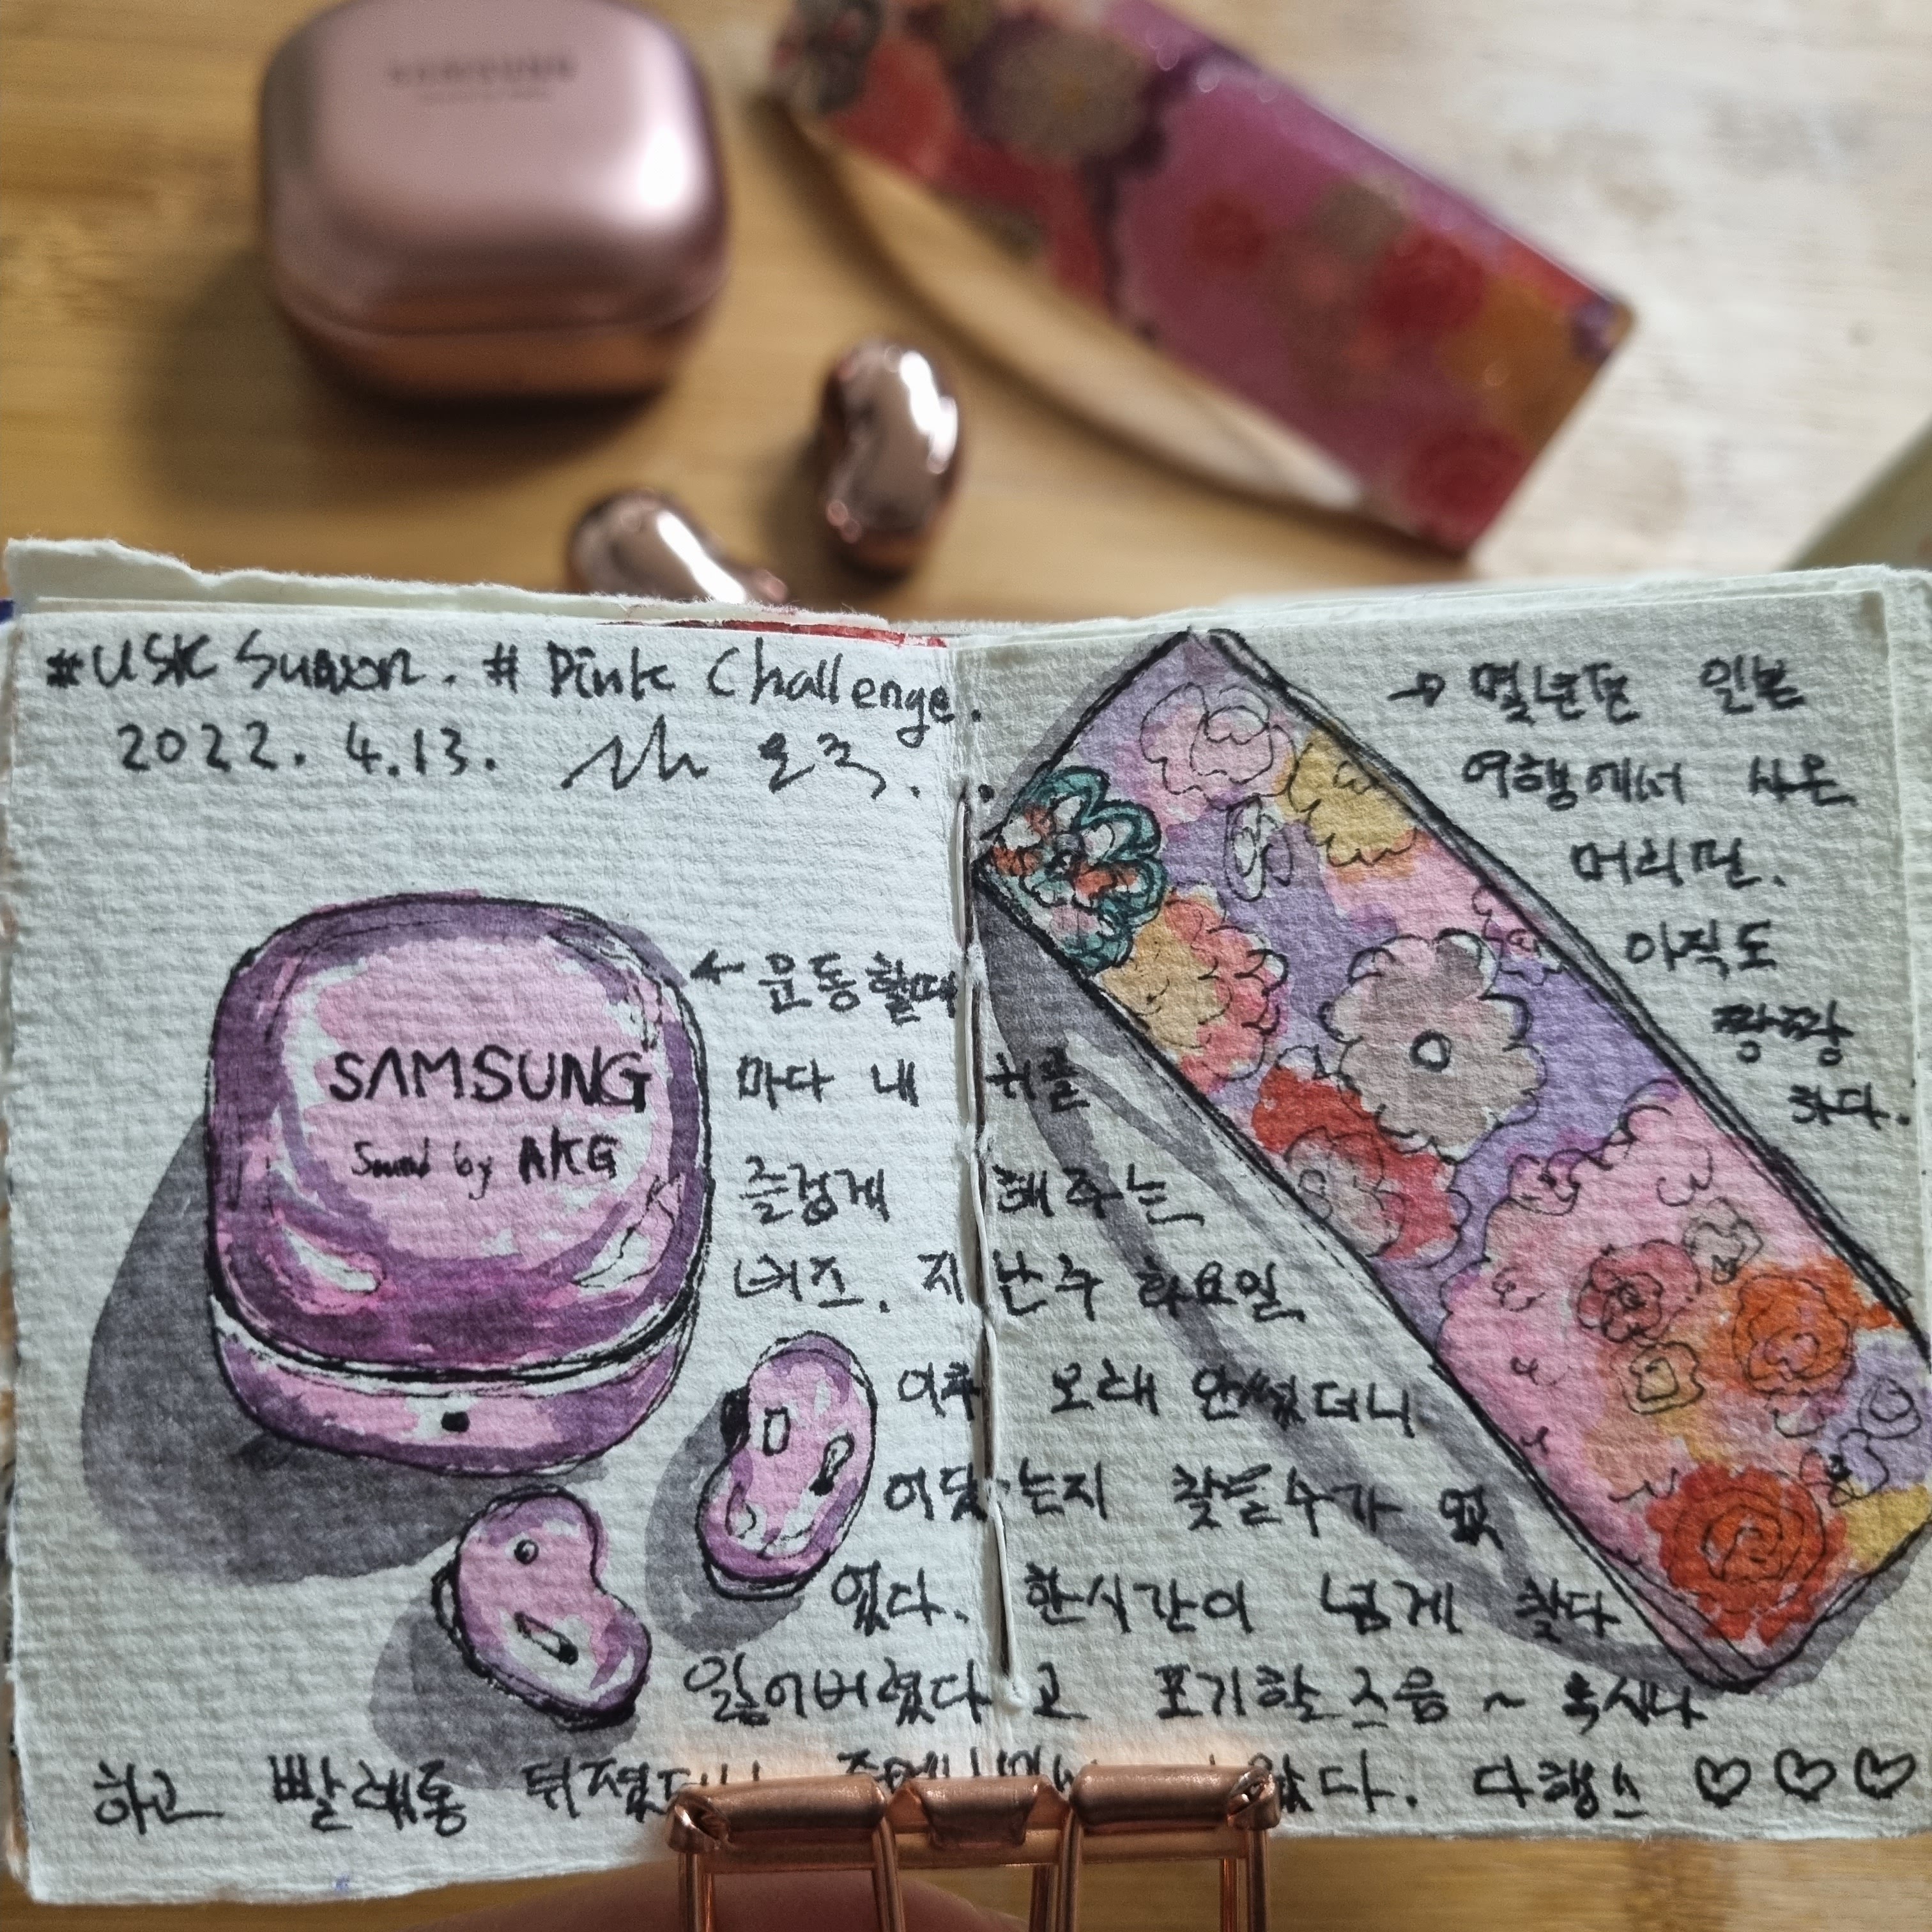 #USK Suwon. # Pink Challenge.
2022. 4.13. 오후.
SAMSUNG
SAMSUNG
Sound by AKG
← 운동할때
마다 내 귀를
즐겁게 해주는
버즈. 지난주 화요일
이후 오래 안썼더니
어딨는지 찾을수가 없
었다. 한시간이 넘게 찾다
잃어버렸다고 포기할 즈음 ~ 혹시나
하고 빨래통 뒤졌더니 았다. 다행스 ♡ ♡ ♡
→ 몇년전 일본
여행에서 사온
머리핀.
아직도
짱짱
하다.